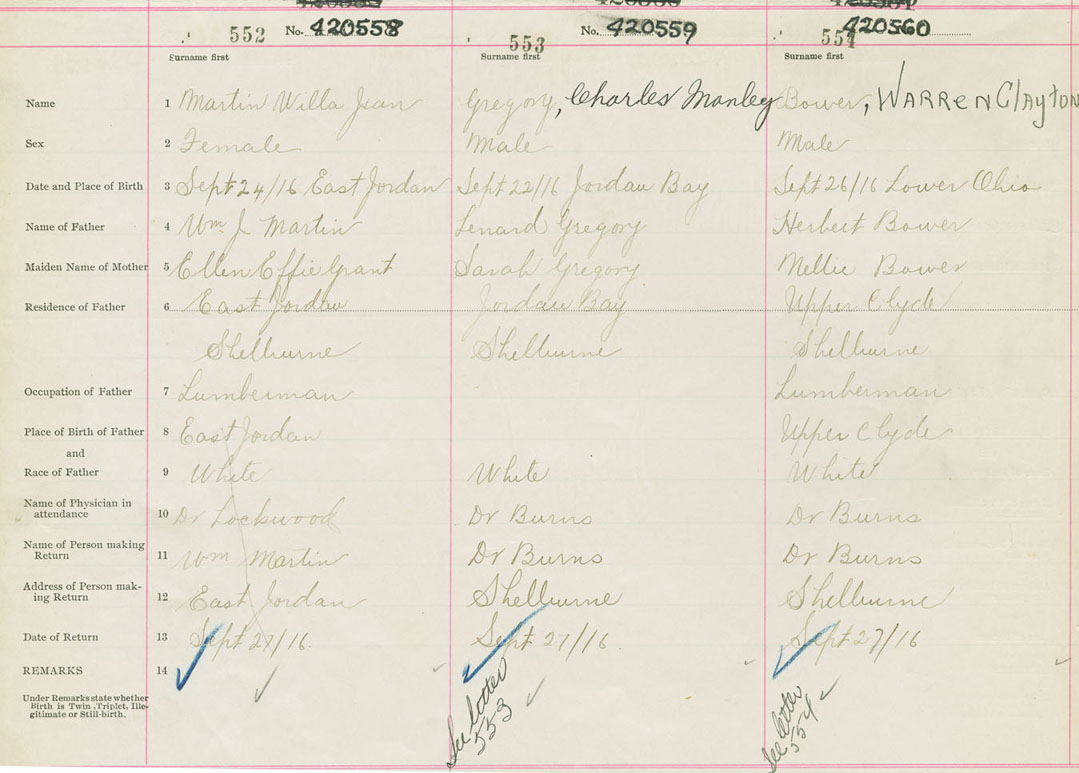 552 No. 420558 553 No. 420559 554 420560
Surname first Surname first Surname first
Name 1 Martin Willa Jean Gregory, Charles Manley Bower, WARREN Clayton
Sex 2 Female Male Male
Date and Place of Birth 3 Sept 24/16 East Jordan Sept 22/16 Jordan Bay Sept 26/16 Lower Ohio
Name of Father 4 Wm J Martin Lenard Gregory Herbert Bower
Maiden Name of Mother 5 Ellen Effie Grant Sarah Gregory Nellie Bower
Residence of Father 6 East Jordan Jordan Bay Upper Clyde
Shelburne Shelburne Shelburne
Occupation of Father 7 Lumberman Lumberman
Place of Birth of Father 8 East Jordan Upper Clyde
and
Race of Father 9 White White White
Name of Physician in
attendance 10 Dr Lockwood Dr Burns Dr Burns
Name of Person making
Return 11 Wm Martin Dr Burns Dr Burns
Address of Person mak-
ing Return 12 East Jordan Shelburne Shelburne
Date of Return 13 Sept 27/16. Sept 27/16. Sept 27/16
REMARKS 14
Under Remarks state whether
Birth is Twin, Triplet, Ille-
gitimate or Still-birth.
See letter
553
See letter
554